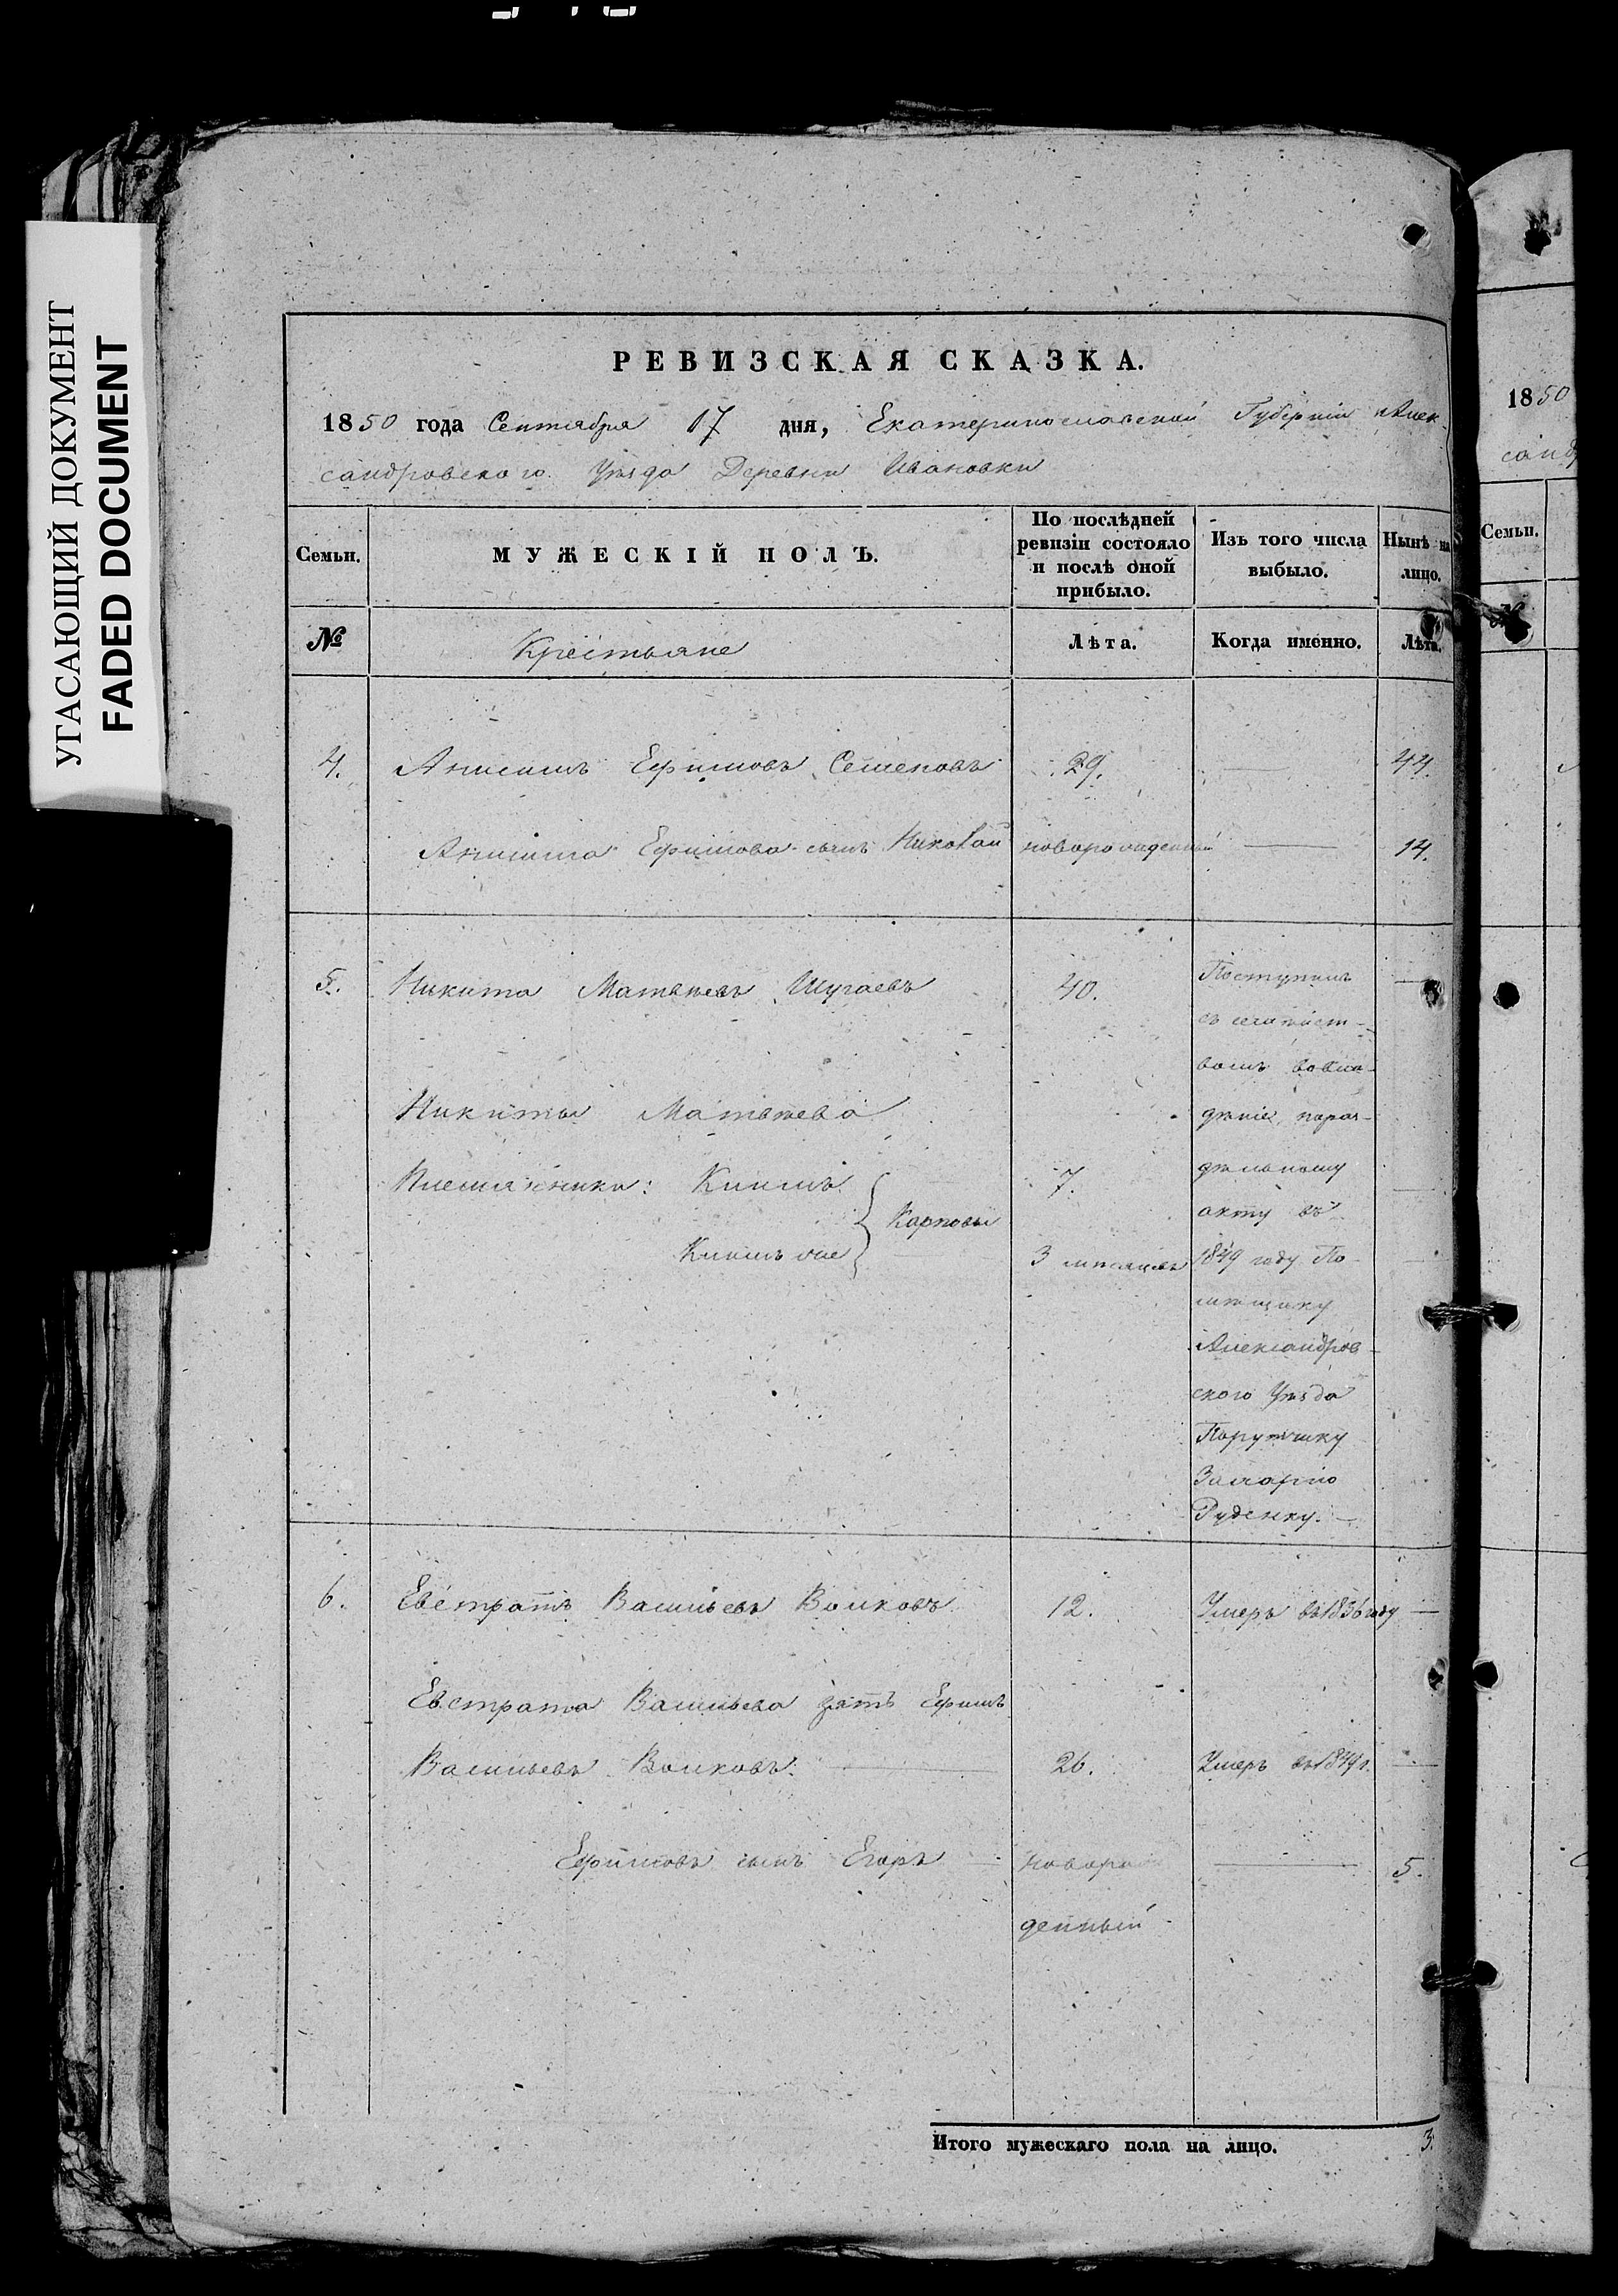 УГАСАЮЩИЙ ДОКУМЕНТ
FADED DOCUMENT
РЕВИЗСКАЯ СКАЗКА.
1850 года Сентября 17 дня, Екатеринославской Губерніи Алек-
сандровскаго Уѣзда Деревни Ивановки
Семьи.
МУЖЕСКІЙ ПОЛЪ.
По послѣдней
ревизіи состояло
и послѣ оной
прибыло.
Изъ того числа
выбыло.
Нынѣ на
лицо.
№
Крестьяне
Лѣта.
Когда именно.
Лѣта.
4. Анисимъ Ефимовъ Семеновъ 29. — 44.
Анисима Ефимова сынъ Николай новорожденный — 14.
5. Никита Матвѣевъ Шугаевъ 40.
Поступилъ
съ семейст-
вомъ во вла-
дѣніе по раз-
дѣльному
акту въ
1849 году По-
мѣщику
Александров-
ского Уѣзда
Поручику
Руденку.
Никиты Матвѣева
Племянники: Климъ 7.
Карповы
3 мѣсяцевъ
6. Евстратъ Васильевъ Волковъ 12. Умеръ въ 1836 году —
Евстрата Васильева зять Ефимъ
Васильевъ Волковъ. — 26. Умеръ въ 1849 г. —
Ефимовъ сынъ Егоръ — новорож
денный — 5.
Итого мужескаго пола на лицо. 3.
1850
санд
Семьи.
№